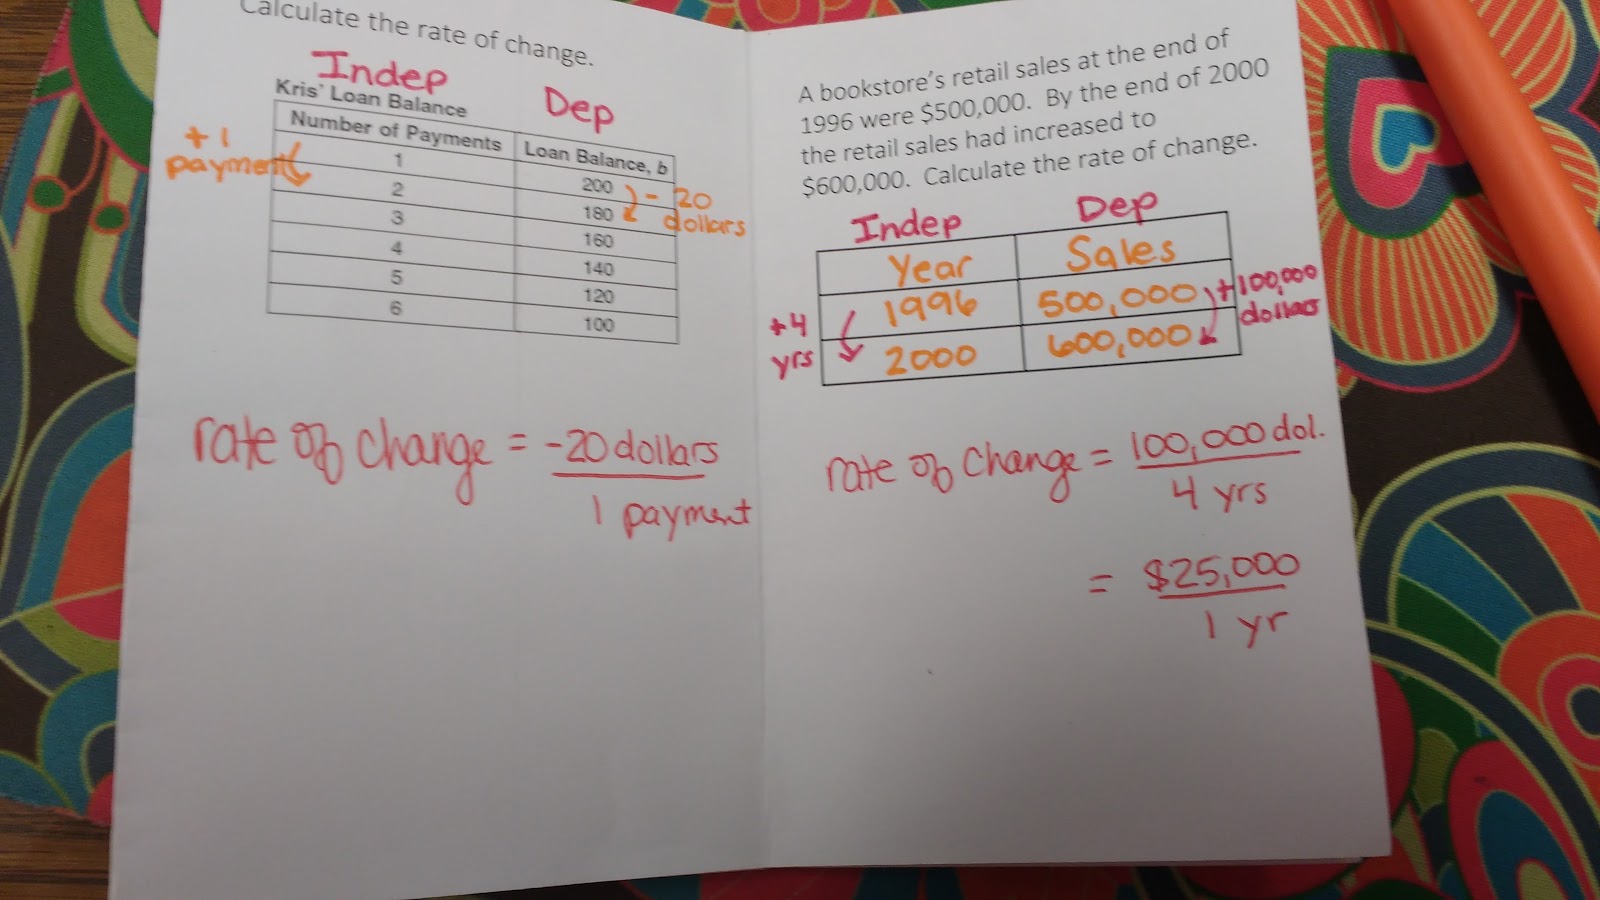 Calculate the rate of change.
Indep Dep
Kris' Loan Balance
Number of Payments Loan Balance, b
1 200
2 180
3 160
4 140
5 120
6 100
+1
payment
- 20
dollars
rate of change = -20 dollars
1 payment
A bookstore's retail sales at the end of
1996 were $500,000. By the end of 2000
the retail sales had increased to
$600,000. Calculate the rate of change.
Indep Dep
Year Sales
1996 500,000
2000 600,000
+4
yrs
+100,000
dollars
rate of change = 100,000 dol.
4 yrs
= $25,000
1 yr